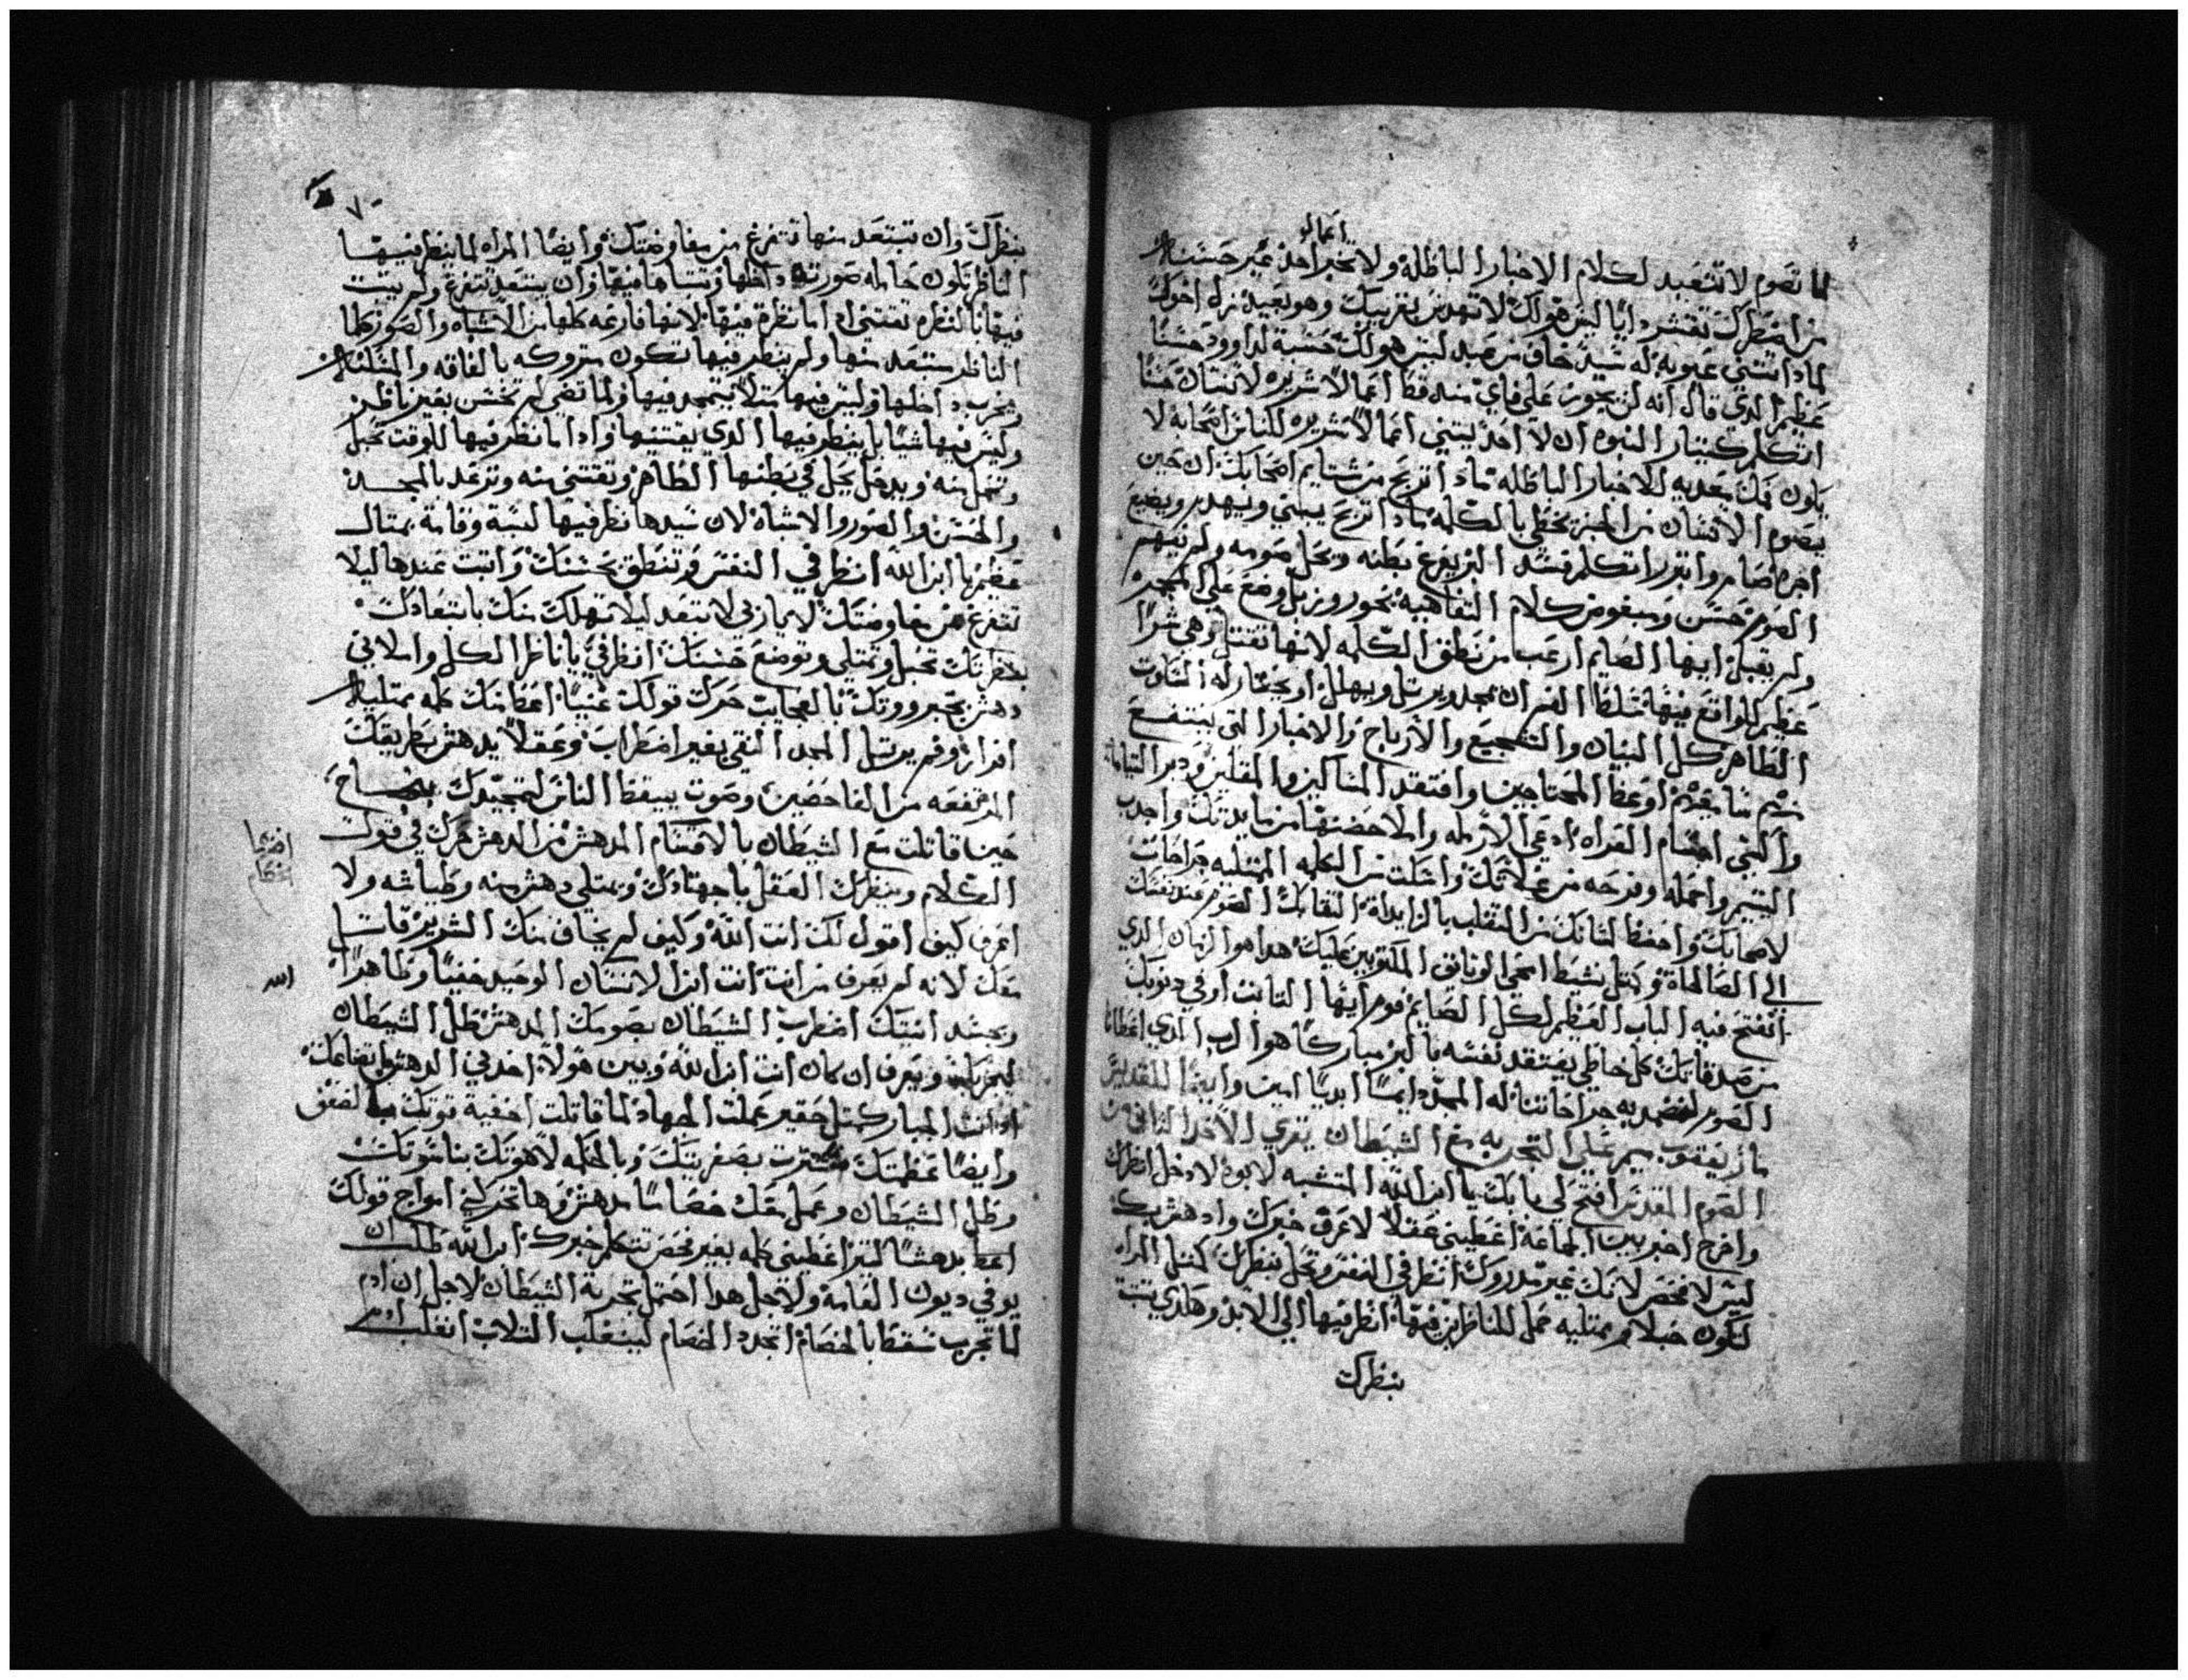 اعمالو
لما تصوم لا تتعبد لكلام الاخبار الباطله ولا تخبر احد غير حسنا
من اضطرك تفتشر دايًا ليس هو لك لا تهدس بقريبك وهو بعيد نزل اخوك
لمادا تتني عيوبه له سيد خاف من عبد ليس هو لك حسبة لداوود حسنًا
عظيم الدي قال انه لن يجوز على فاي منه قط اعمالاً شريره لانسان حسنًا
اتكلم كنيار النبوه ان لا احد يبتني اعمالاً شريره للناس اصحابه لا
يكون فمك معديه للاخبار الباطله مادا تربح من شتايم اصحابك ان حين
يصوم الانسان من الخبز يخطي بالكلمه مادا تربح يبني ويهدم ويضيع
اجره صام وابتدر اتكلم فسد البر يفرغ بطنه ويحل صومه ولم يفهم
الصوم حسن ومبغوض كلام التفاهيه بخور وزبل وضع على المجمر
ولم يقبل ايها الصايم ارعب من نطق الكلمه لانها تقتل وهي شرًا
عظيم للواقع فيها سلط الفم ان يمجد ويرتل ويهلل او يختار له السكوت
الطاهر كل البنيان والتشجيع والارباح والاخبار التي ينتفع
منهم سامعيهم اوعظ المحتاجين وافتقد المساكين والمقلين ودبر اليتاما
واكسي اجسام العراه ادعي الارمله واملا حضنها من مايدتك واجدب
اليتيم واحمله وفرحه من غلاتك واشلت من الكلمه الممتليه جراحات
لاصحابك واحفظ لسانك من التقلب بالزايداة التقابك الصوم عند نفسك
الي الصالحاة وكمتل نشيط امحي الوثايق المكتوبين عليك هدا هو الزمان الدي
انفتح فيه الباب العظيم لكل الصايم قوم ايها التايب اوفي ديونك
من صدقاتك كل خاطي يفتقد نفسه بالبر مباركًا هو الرب الدي اعطانا
الصوم لنضمد به جراحاتنا له المجد دايمًا ابديًا امين وايضًا للقديس
مار يعقوب ميمر علي التجربه مع الشيطان يقري الاحد التاني من
الصوم المقدس افتح لي بابك يا ابن الله المتشبه لابوه لادخل انظرك
واخرج اخبر بين الجماعة اعطيني عقلاً لاعرف خبرك وادهش بك
ليس لافحص لانك غير مدروك انظر في النفس وتحل بنظرك كمتل المراه
لتكون حبلا ممتليه حمل للناظرين فيها انظر فيها الي الابد وهكدي تتبت
بنظرك
٧٠
بنظرك وان تبتعد منها تتفرغ من مفاوضتك وايضًا المراه لما ينظر فيها
الناظر تكون حامله صورته داخلها وتتباهاميها وان يبتعد تتفرغ ولم يتبت
فيها بالنظره تقتني ادا ما نظره فيها لانها فارغه كلها من الاشباه والصور كلما
الناظر يبتعد منها ولم ينظر فيها تكون متروكه بالفاقه والمسكنه
ويخرب داخلها وليس فيها متلاً يتمجد فيها ولما تضي لم تحسن بغير ناظر
وليس فيها شيًا بل ينظر فيها الدي يقتنيها وادا ما نظر فيها للوقت تحبل
وتحمل منه ويدخل يحل في بطنها الطاهر وتقتني منه وترعد بالمجد
والحسن والصور والاشباه لان سيدها نظر فيها لبسة وقامة بمتال
عظيم يا ابن الله انظر في النفس وتنطق بحسنك واتبت عندها ليلا
تتفرغ من مفاوضتك لا يمازني لا تتعد ليلا تهلك منك بابتعادك
بنظرتك تحبل وتمتلي وتوضع حسنك انظر في يا ناظر الكل واملاني
دهش بجبرووتك بالعجايب حرك قولك غنيًا اعطا منك كلمه ممتليه
افرازه وفم يرتل المجد النقي بغير اضطراب وعقلاً يدهش بطريقك
المرتفعه من الفاحصين وصوت ييقظ الناس لتمجيدك بنجاح
حين قاتلت مع الشيطان بالاقتنام المدهش من الدهش حرك في قوت
الكلام وينظرك العقل باجتهادك ويمتلي دهش منه وطياشه ولا
اعرف كيف اقول لك انت الله وكيف لم يخاف منك الشرير قاتل
معك لانه لم يعرف من انت انت ابن الانسان الوحيد خفيًا وظاهرًا
وبجسد انتك اضطرب الشيطان بصومك المدهش ظل الشيطان
ليجربك ويعرف ان كان انت ابن الله وبين هولا احد في الدهش باتضاعك
ادا انت المبارك كمتل حقير عملت الجهاد لما قاتلت اخفية قوتك بالضعف
وايضًا عظمتك استترت بصغريتك وبالحكمه لاهوتك بناسوتك
وظل الشيطان وعمل معك خصامًا مدهش وها تحركني امواج قولك
اعطا بدهشًا لتبر اعطيني كلمه بغير فحص تتكلم خبرك ابن الله طلب ان
يوفي ديون القامة ولاجل هدا احتمل تجربة الشيطان لاجل ان ادم
لما تجرب سقط بالخصام اتجدد الخصام لينغلب التلاب انغلب ادم
الله